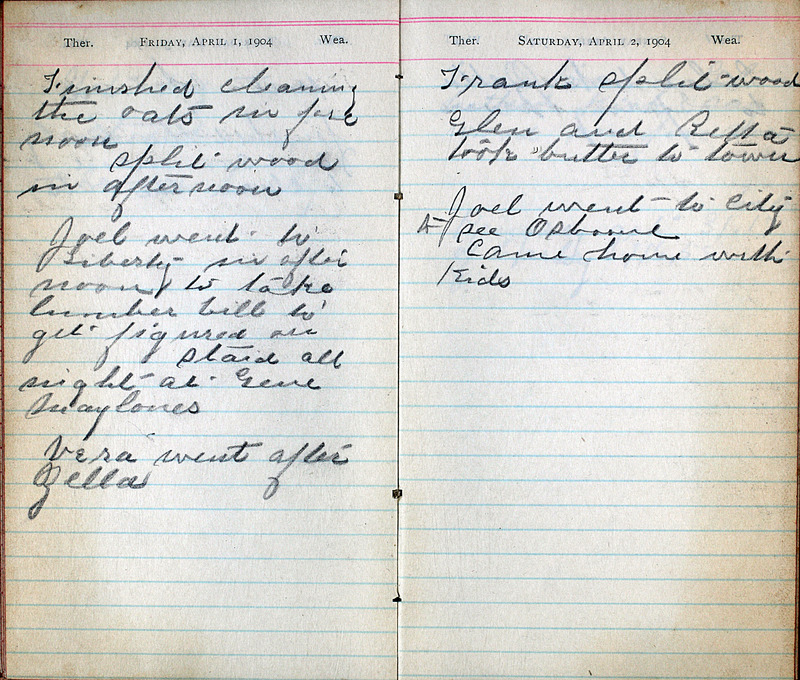 Ther. Friday, April 1, 1904 Wea.
Finished cleaning
the oats in fore
noon
split wood
in afternoon
Joel went to
Liberty in after
noon to take
lumber bill to
get figured on
staid all
night at Gene
Maylones
Vera went after
Zella
Ther. Saturday, April 2, 1904 Wea.
Frank split wood
Glen and
took butter to town
Joel went to City
to see Osborne
Came home with
Kids